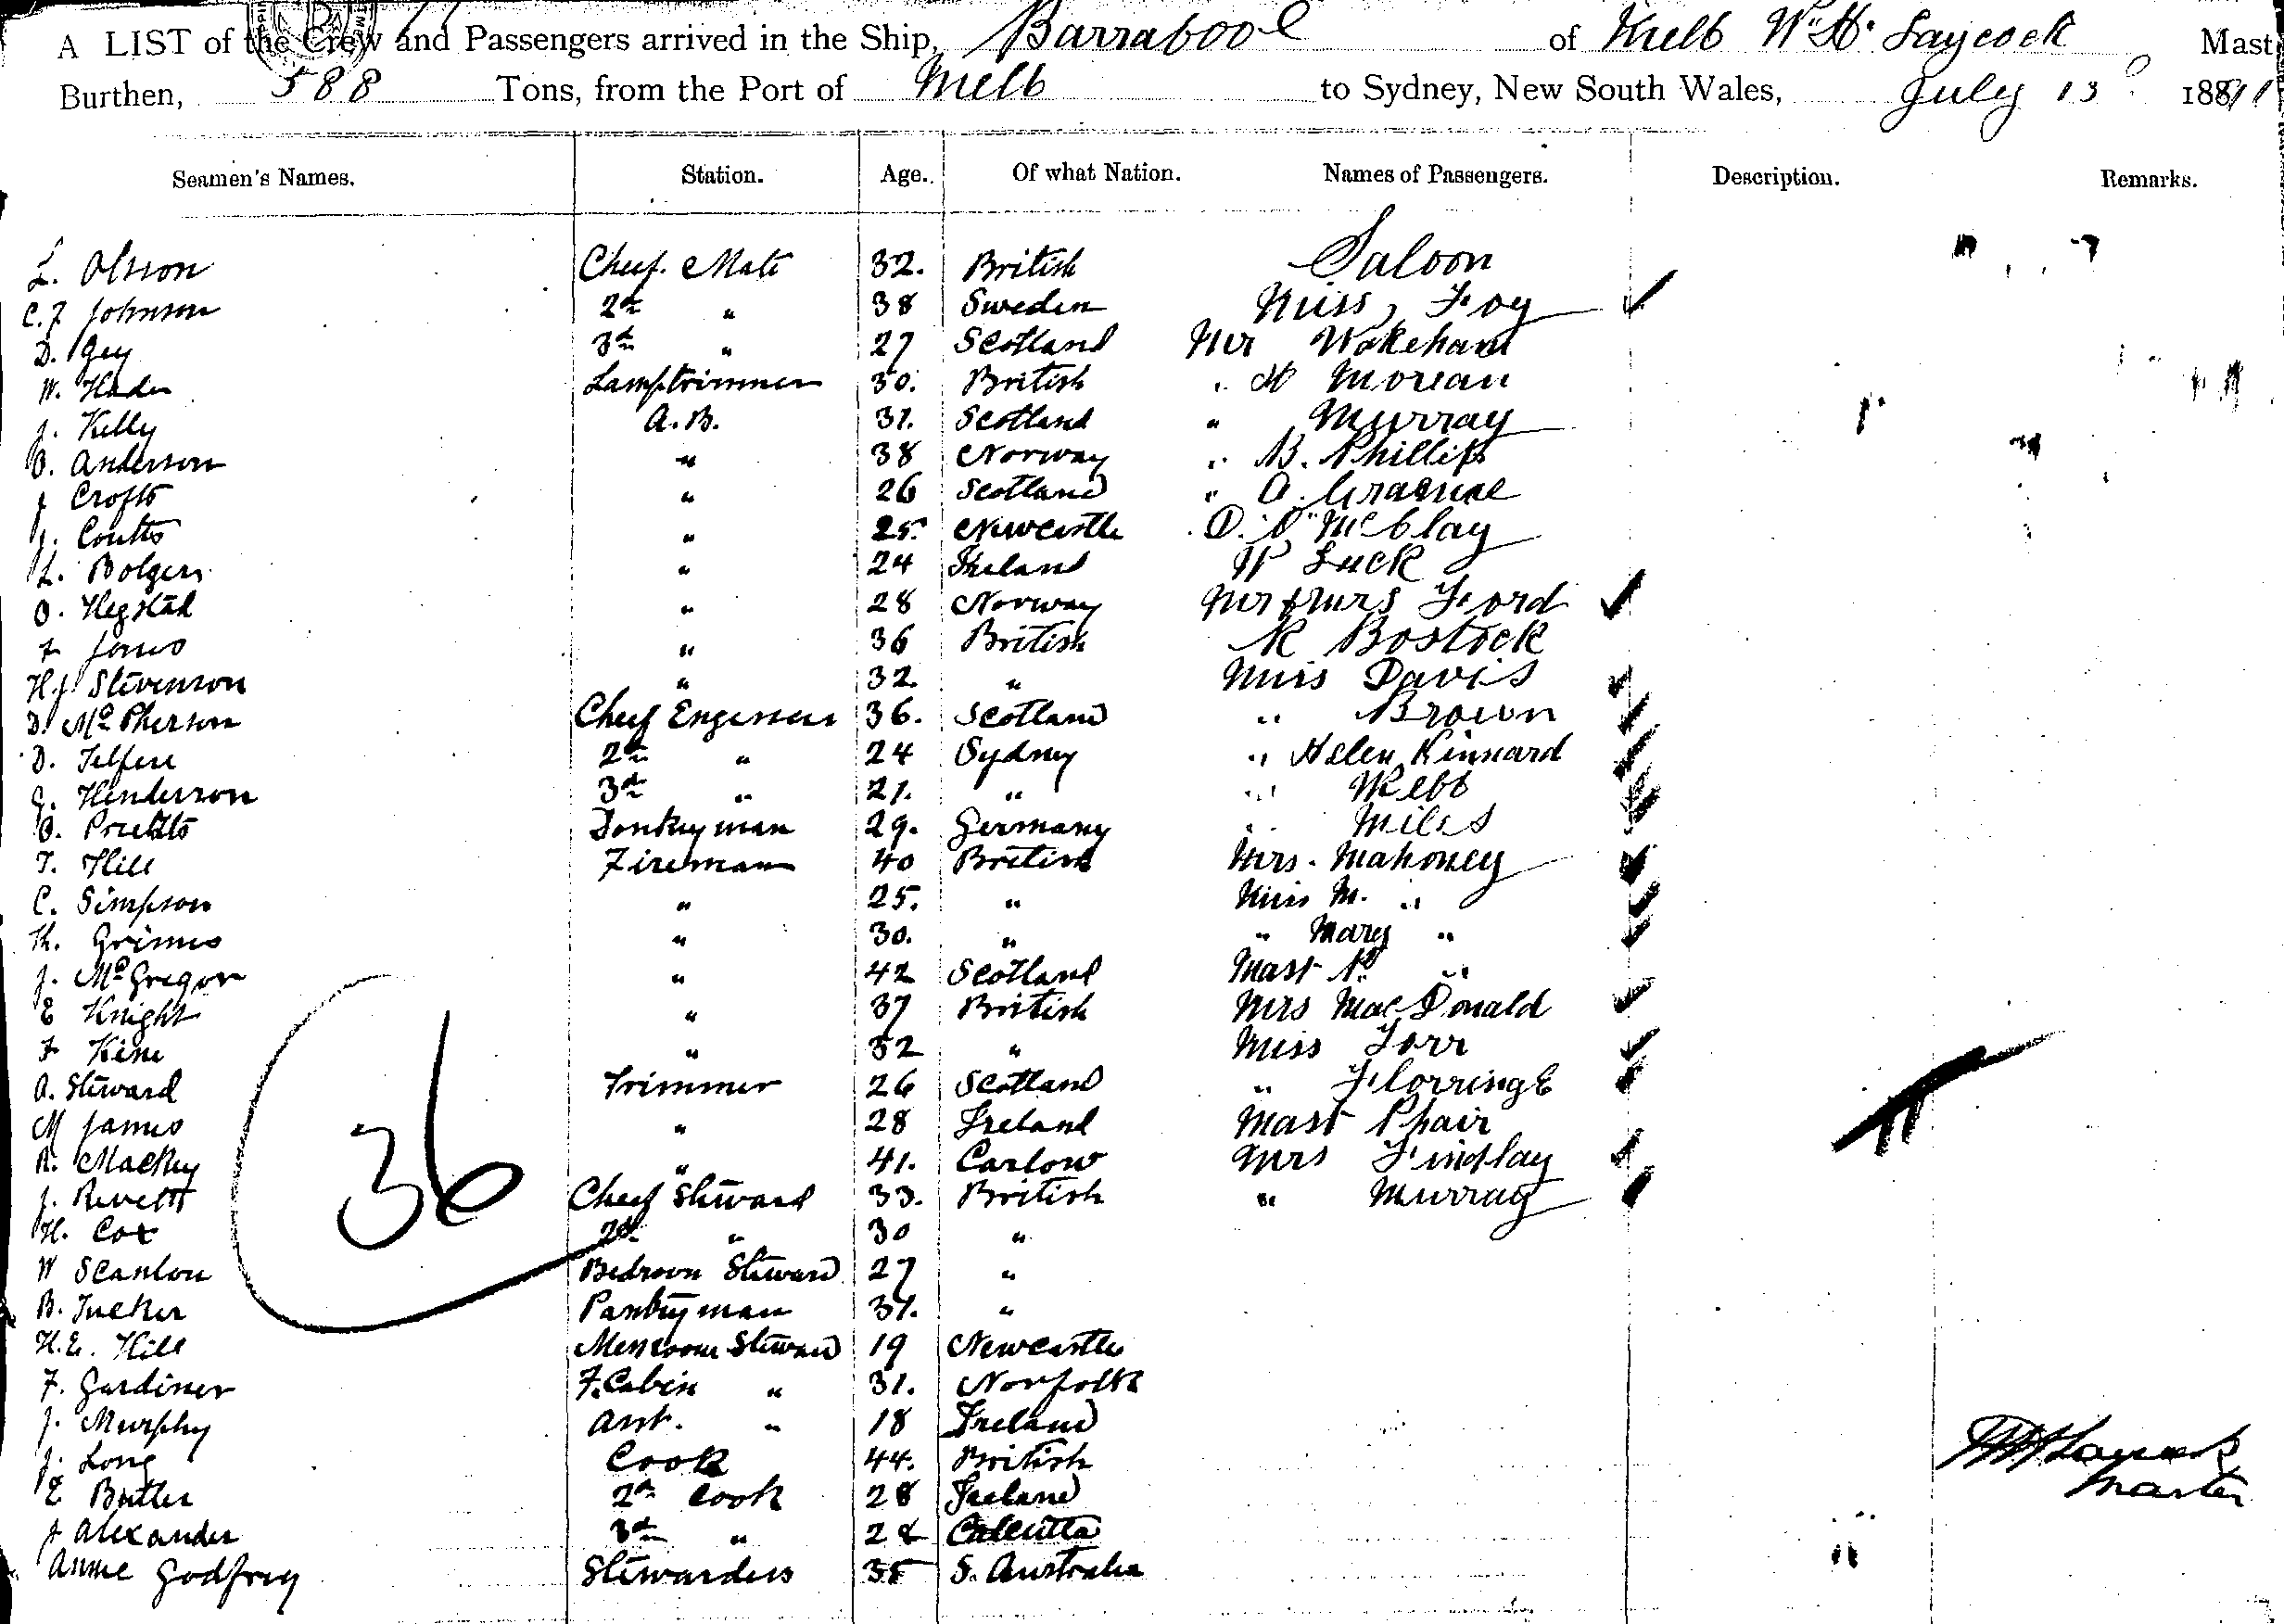 A LIST of the Crew and Passengers arrived in the Ship, Barrabool of Melb W. H. Laycock Mast
Burthen, 588 Tons, from the Port of Melb to Sydney, New South Wales, July 13 1881
Seamen's Names. Station. Age. Of what Nation. Names of Passengers. Description. Remarks.
L. Olsson Cheif. Mate 32. British Saloon
C. F Johnson 2nd " 38 Sweden Miss, Foy
D. Guy 3rd " 27 Scotland Mr Wakeham
W. Lamptrimmer 30. British " H Morean
J. Kelly A.B. 31. Scotland " Murray
O. Anderson " 38 Norway " B. Phillips
J Crofts " 26 Scotland " A.
J. Coutts " 25. Newcastle D. McClay
L. Bolger " 24 Ireland W Luck
O. Hegstad " 28 Norway Mr & Mrs Ford
F Jones " 36 British R Bostock
H.J. Stevenson " 32. " Miss Davis
D. McPherson Cheif Engineer 36. Scotland " Brown
D. Telfer 2nd " 24 Sydney " Helen Kinnard
G. Henderson 3rd " 21. " " Webb
O. Donkeyman 29. Germany " Miles
T. Hill Fireman 40 British Mrs. Mahoney
C. Simpson " 25. " Miss M. "
Th. Grimes " 30. " " Mary "
J. McGregor " 42 Scotland Mast "
E Knight " 37 British Mrs MacDonald
F King " 32 " Miss Torr
A. Steward Trimmer 26 Scotland " Florringe
M James " 28 Ireland Mast Phair
R. Mackey " 41. Carlow Mrs Findlay
J. Revett Cheif Steward 33. British " Murray
H. Cox 2nd " 30 "
W Scanlon Bedroom Steward 27 "
B. Tucker Pantryman 37. "
H.E. Hill Messroom Steward 19 Newcastle
F. Gardiner F. Cabin " 31. Norfolk
J. Murphy Asst. " 18 Ireland
J. Long Cook 44. British
E Butler 2nd Cook 28 Ireland
J Alexander 3rd " 28 Calcutta
Annie Godfrey Stewardess 35 S. Australia
36
W H Laycock
Master